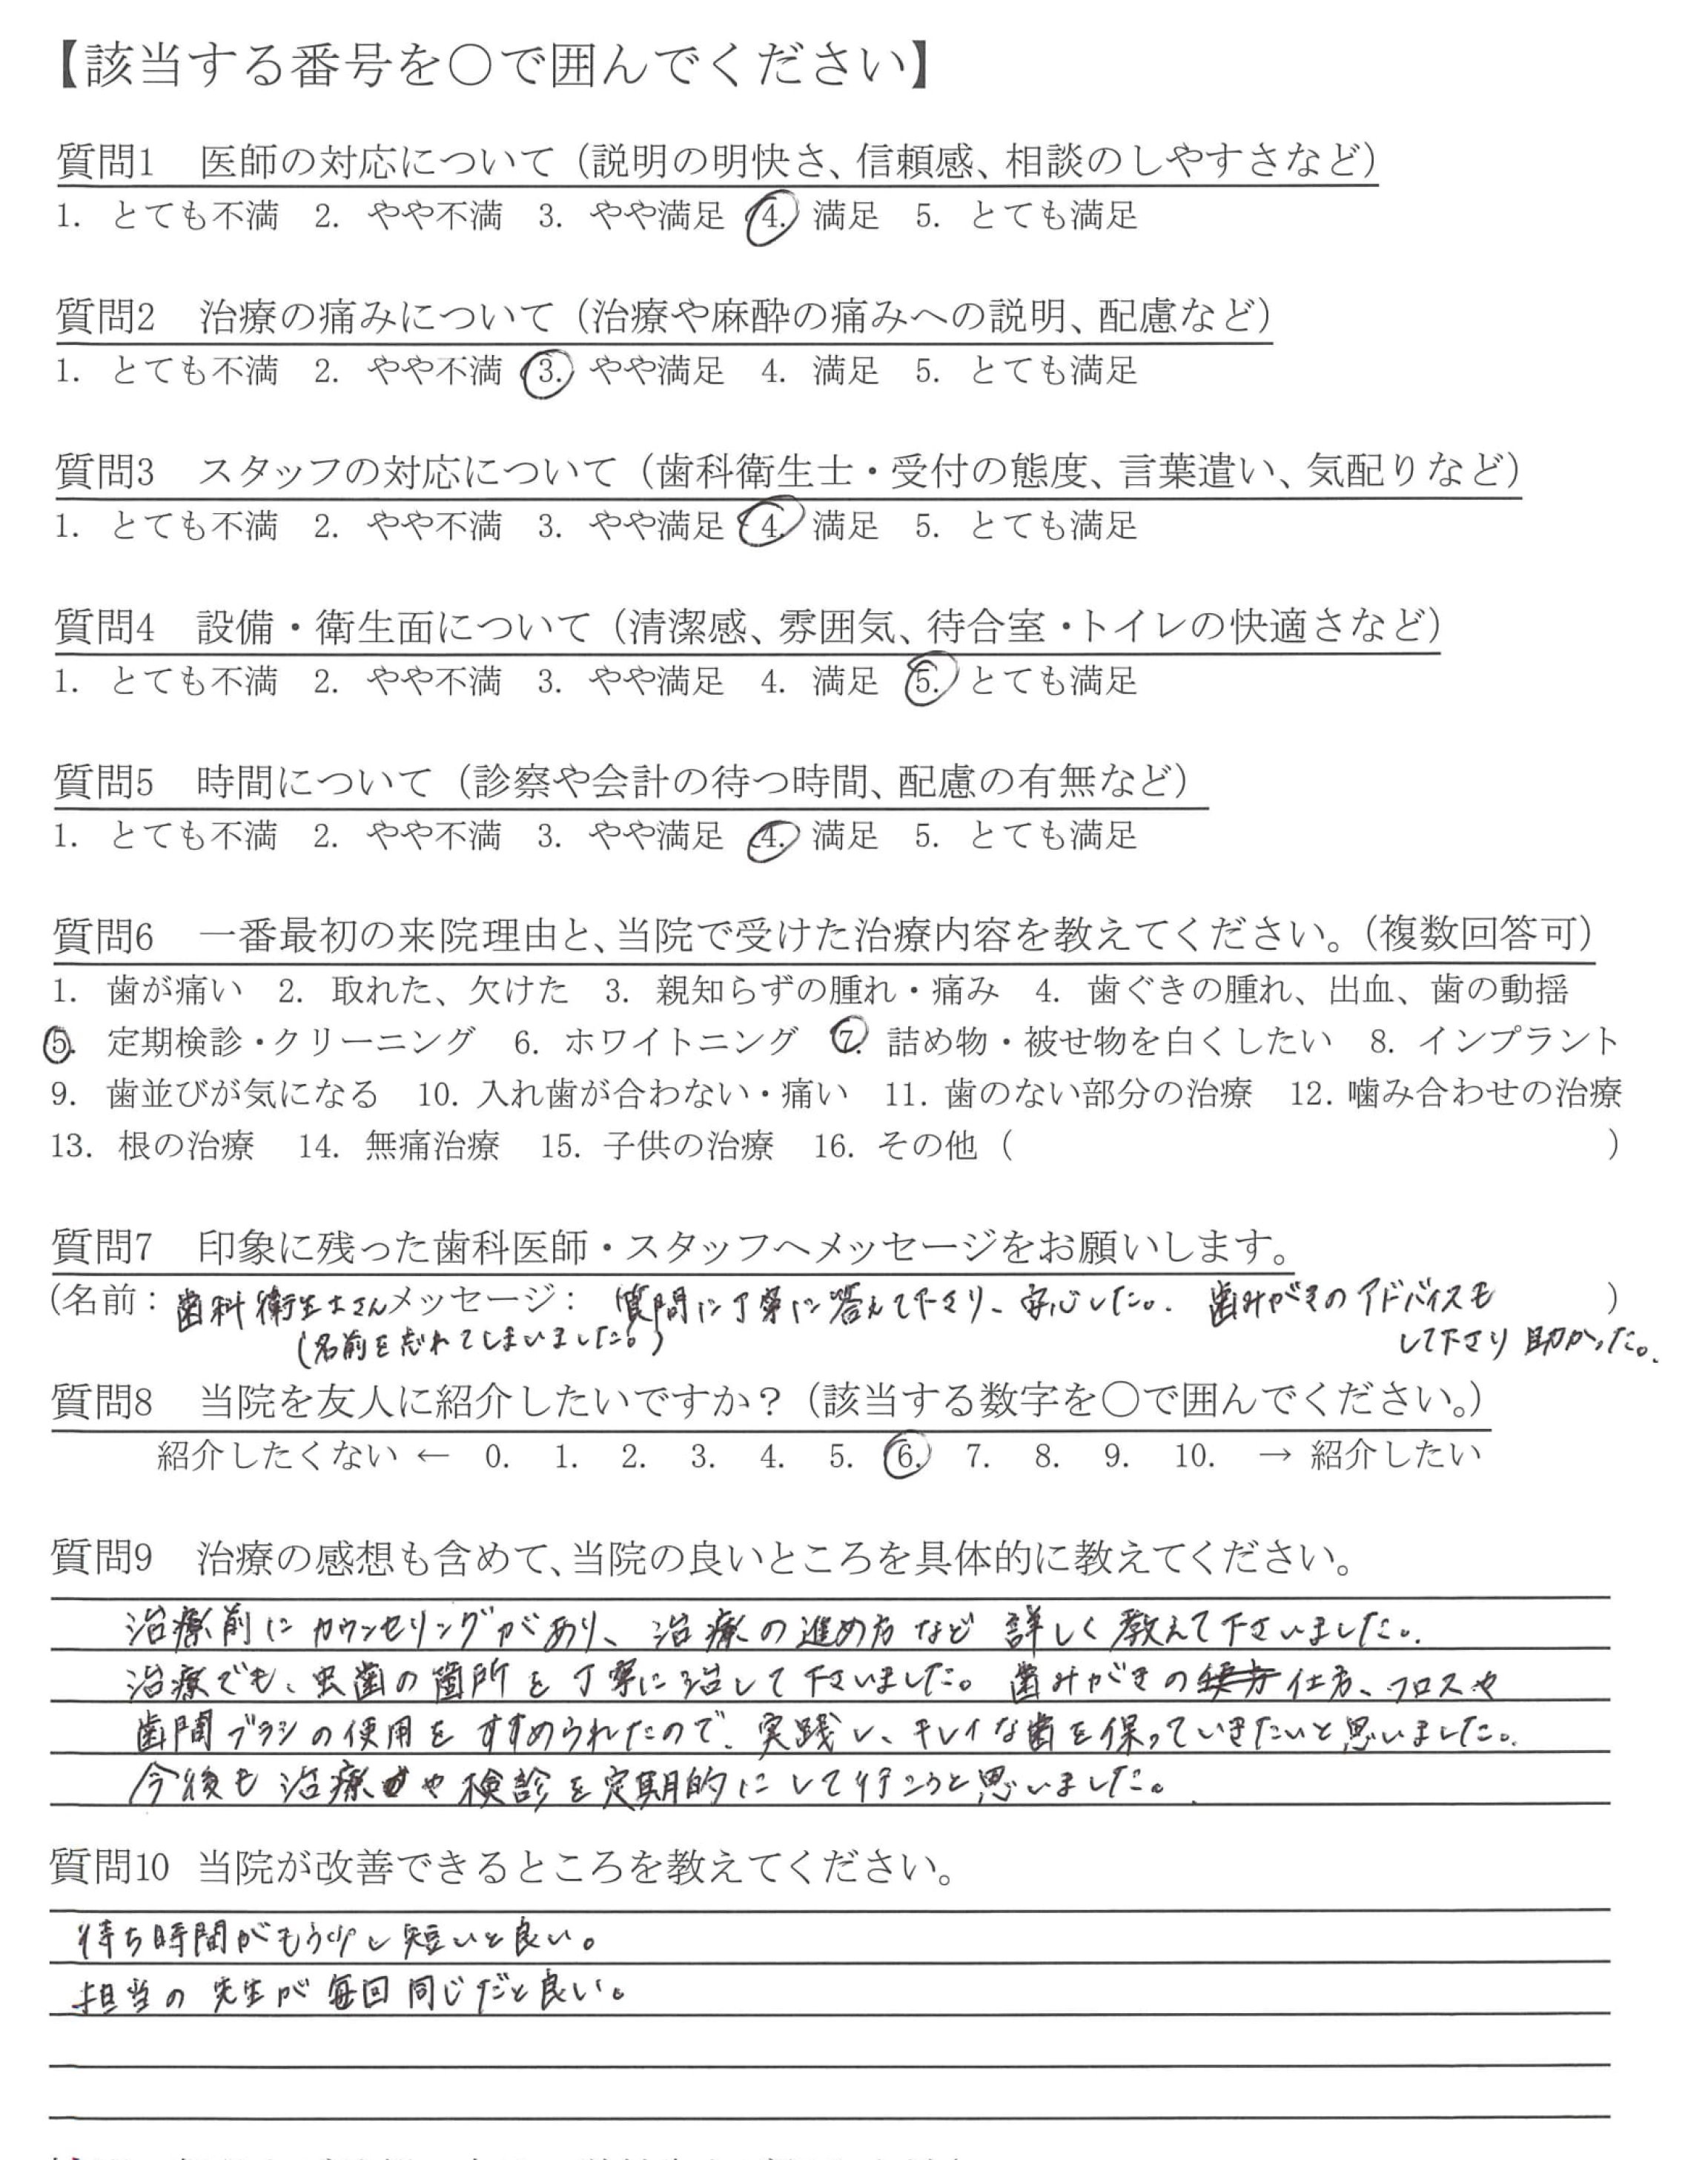 【該当する番号を〇で囲んでください】
質問1 医師の対応について（説明の明快さ、信頼感、相談のしやすさなど）
1. とても不満 2. やや不満 3. やや満足 4. 満足 5. とても満足
質問2 治療の痛みについて（治療や麻酔の痛みへの説明、配慮など）
1. とても不満 2. やや不満 3. やや満足 4. 満足 5. とても満足
質問3 スタッフの対応について（歯科衛生士・受付の態度、言葉遣い、気配りなど）
1. とても不満 2. やや不満 3. やや満足 4. 満足 5. とても満足
質問4 設備・衛生面について（清潔感、雰囲気、待合室・トイレの快適さなど）
1. とても不満 2. やや不満 3. やや満足 4. 満足 5. とても満足
質問5 時間について（診察や会計の待つ時間、配慮の有無など）
1. とても不満 2. やや不満 3. やや満足 4. 満足 5. とても満足
質問6 一番最初の来院理由と、当院で受けた治療内容を教えてください。（複数回答可）
1. 歯が痛い 2. 取れた、欠けた 3. 親知らずの腫れ・痛み 4. 歯ぐきの腫れ、出血、歯の動揺
5. 定期検診・クリーニング 6. ホワイトニング 7. 詰め物・被せ物を白くしたい 8. インプラント
9. 歯並びが気になる 10. 入れ歯が合わない・痛い 11. 歯のない部分の治療 12. 噛み合わせの治療
13. 根の治療 14. 無痛治療 15. 子供の治療 16. その他（ ）
質問7 印象に残った歯科医師・スタッフへメッセージをお願いします。
（名前：歯科衛生士さんメッセージ： 質問に丁寧に答えて下さり、安心した。歯みがきのアドバイスも ）
（名前を忘れてしまいました。） して下さり助かった。
質問8 当院を友人に紹介したいですか？（該当する数字を〇で囲んでください。）
紹介したくない ← 0. 1. 2. 3. 4. 5. 6. 7. 8. 9. 10. → 紹介したい
質問9 治療の感想も含めて、当院の良いところを具体的に教えてください。
治療前にカウンセリングがあり、治療の進め方など詳しく教えて下さいました。
治療でも、虫歯の箇所を丁寧に治して下さいました。歯みがきの仕方、フロスや
歯間ブラシの使用をすすめられたので、実践し、キレイな歯を保っていきたいと思いました。
今後も治療や検診を定期的にして行こうと思いました。
質問10 当院が改善できるところを教えてください。
待ち時間がもう少し短いと良い。
担当の先生が毎回同じだと良い。